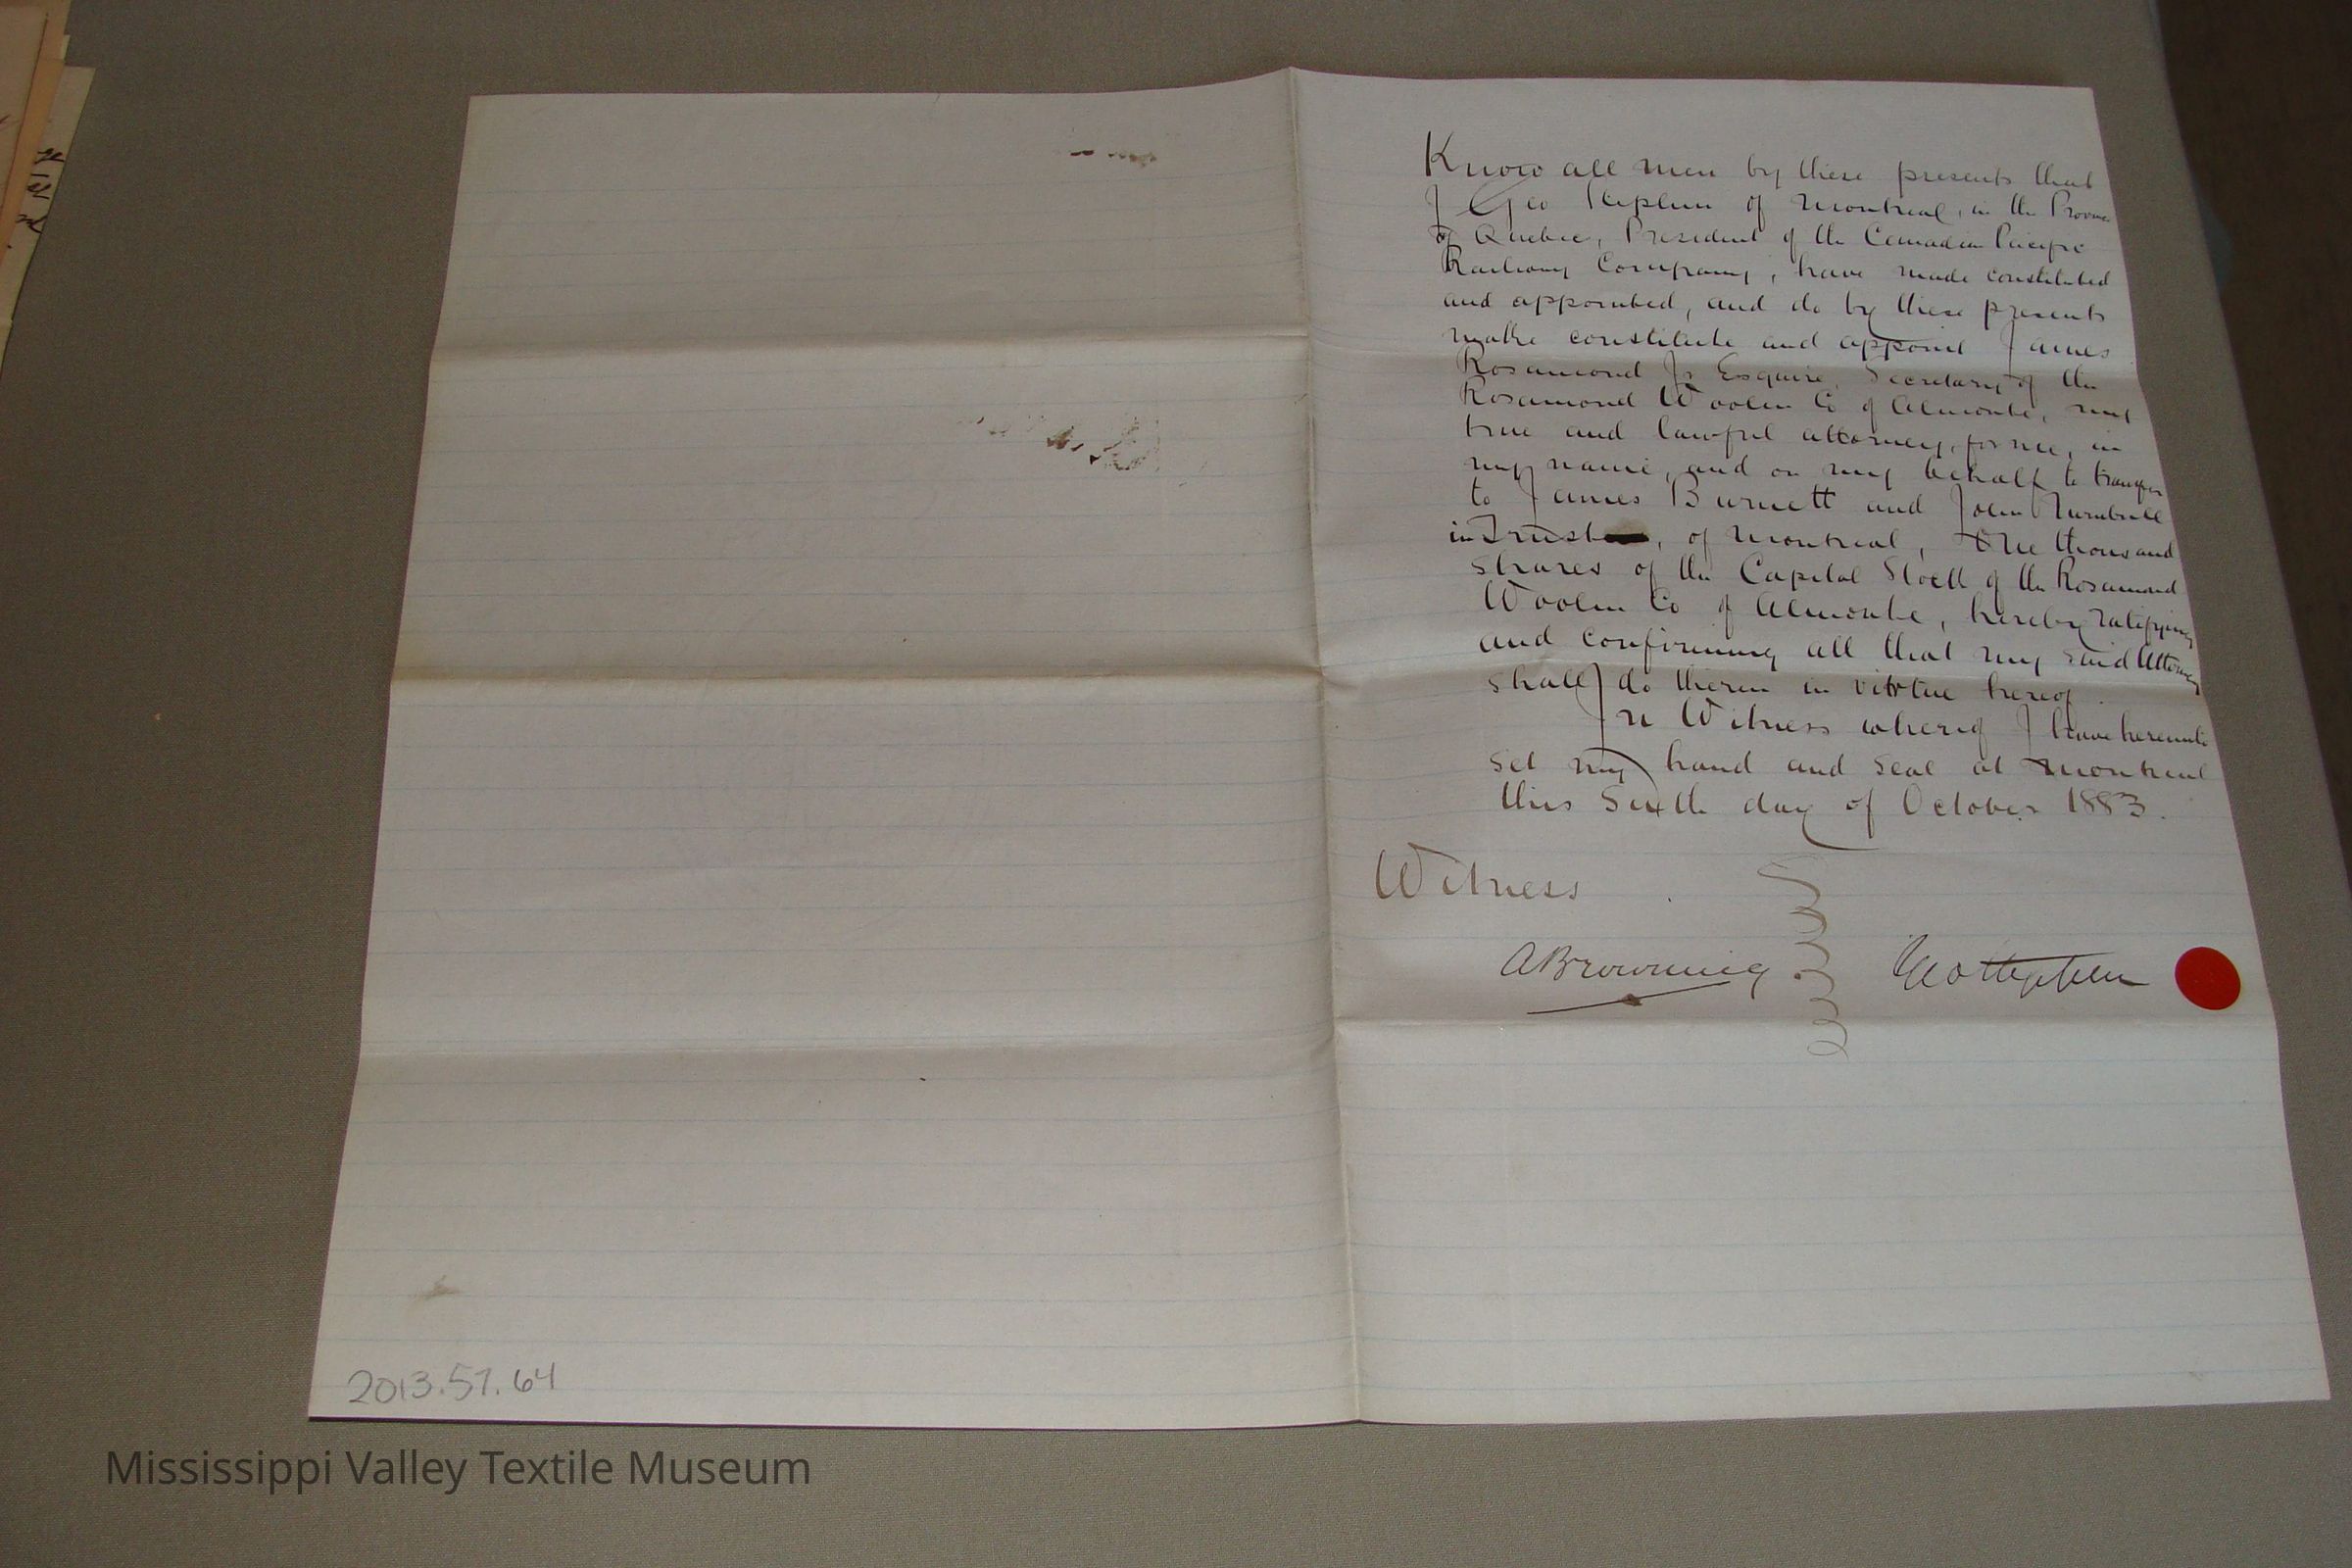 Know all men by these presents that
I Geo Stephen of Montreal, in the Province
of Quebec, President of the Canadian Pacific
Railway Company, have made constituted
and appointed, and do by these presents
make constitute and appoint James
Rosamond Jr Esquire, Secretary of the
Rosamond Woolen Co of Almonte, my
true and lawful attorney, for me, in
my name, and on my behalf to transfer
to James Burnett and John Turnbull
in Trust, of Montreal, One thousand
shares of the Capital Stock of the Rosamond
Woolen Co of Almonte, hereby ratifying
and confirming all that my said Attorney
shall do therein in virtue hereof.
In Witness whereof I have hereunto
set my hand and seal at Montreal
this Sixth day of October 1883.
Witness
A Browning
Geo Stephen
2013.57.64
Mississippi Valley Textile Museum